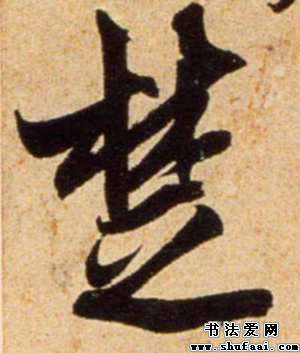 楚
书法爱网
www.shufaai.com